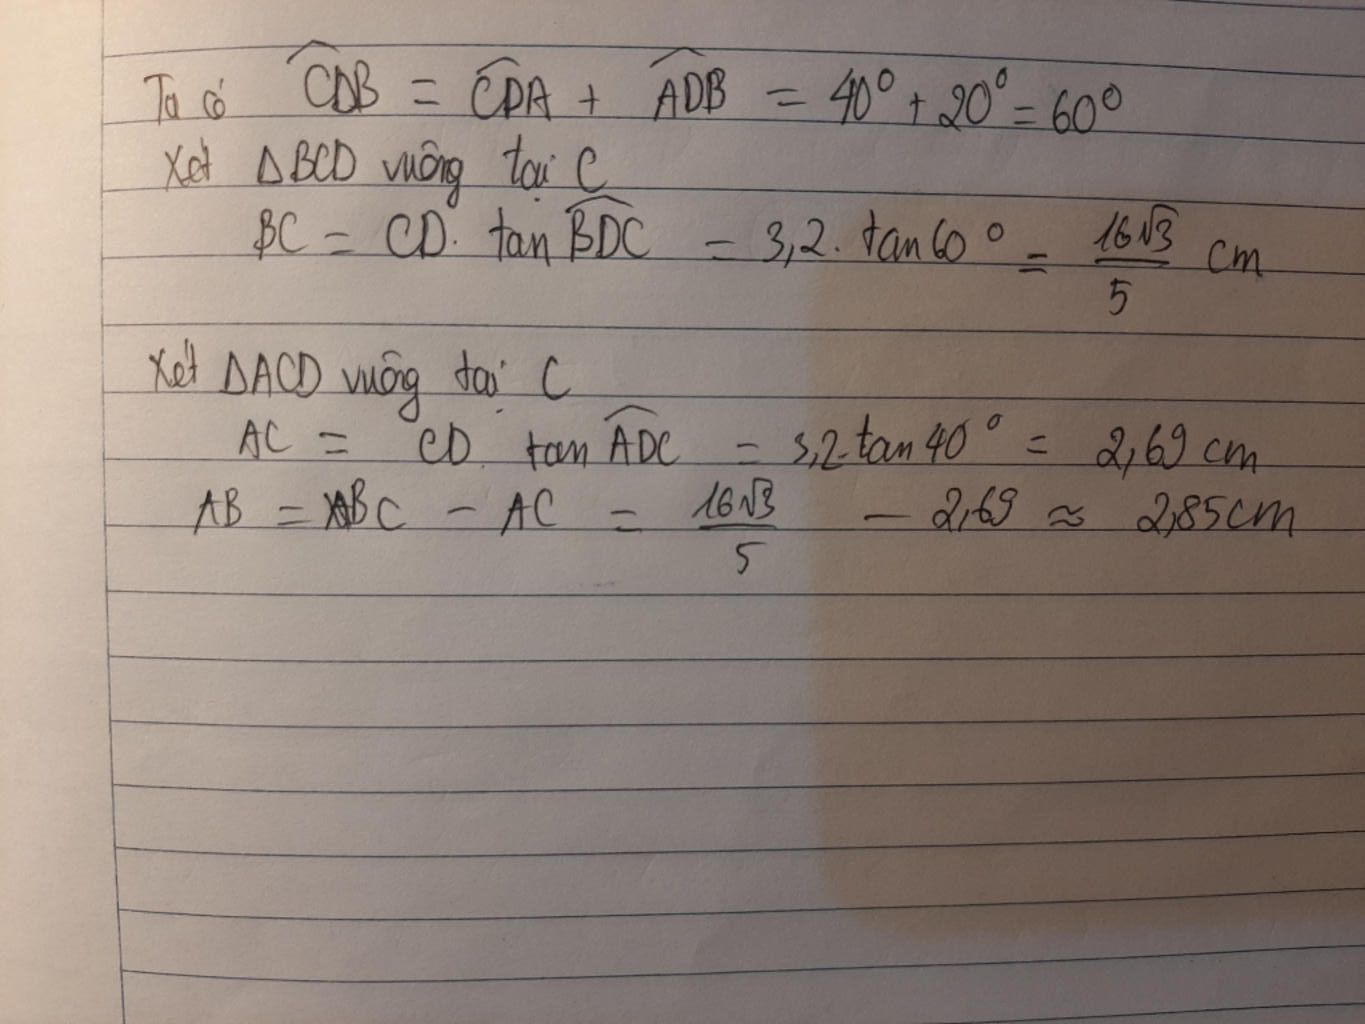 Ta có CDB = CDA + ADB = 40° + 20° = 60°
Xét ΔBCD vuông tại C
BC = CD. tan BDC = 3,2. tan 60° = 16√3/5 cm
Xét ΔACD vuông tại C
AC = CD. tan ADC = 3,2. tan 40° = 2,69 cm
AB = BC - AC = 16√3/5 - 2,69 ≈ 2,85cm